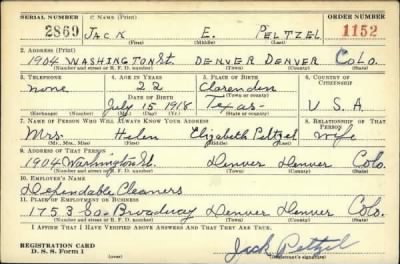 SERIAL NUMBER 1. NAME (Print) ORDER NUMBER
2869 JACK E. PELTZEL 1152
(First) (Middle) (Last)
2. ADDRESS (Print)
1904 WASHINGTON St. DENVER DENVER COLO.
(Number and street or R. F. D. number) (Town) (County) (State)
3. TELEPHONE 4. AGE IN YEARS 5. PLACE OF BIRTH 6. COUNTRY OF CITIZENSHIP
none 22 Clarendon
DATE OF BIRTH (Town or county)
July 15 1918 Texas U.S.A.
(Exchange) (Number) (Mo.) (Day) (Yr.) (State or country)
7. NAME OF PERSON WHO WILL ALWAYS KNOW YOUR ADDRESS 8. RELATIONSHIP OF THAT PERSON
Mrs. Helen Elizabeth Peltzel wife
(Mr., Mrs., Miss) (First) (Middle) (Last)
9. ADDRESS OF THAT PERSON
1904 Washington St. Denver Denver Colo.
(Number and street or R. F. D. number) (Town) (County) (State)
10. EMPLOYER'S NAME
Dependable Cleaners
11. PLACE OF EMPLOYMENT OR BUSINESS
1753 So. Broadway Denver Denver Colo.
(Number and street or R. F. D. number) (Town) (County) (State)
I AFFIRM THAT I HAVE VERIFIED ABOVE ANSWERS AND THAT THEY ARE TRUE.
REGISTRATION CARD
D. S. S. Form 1
Jack Peltzel
(Registrant's signature)